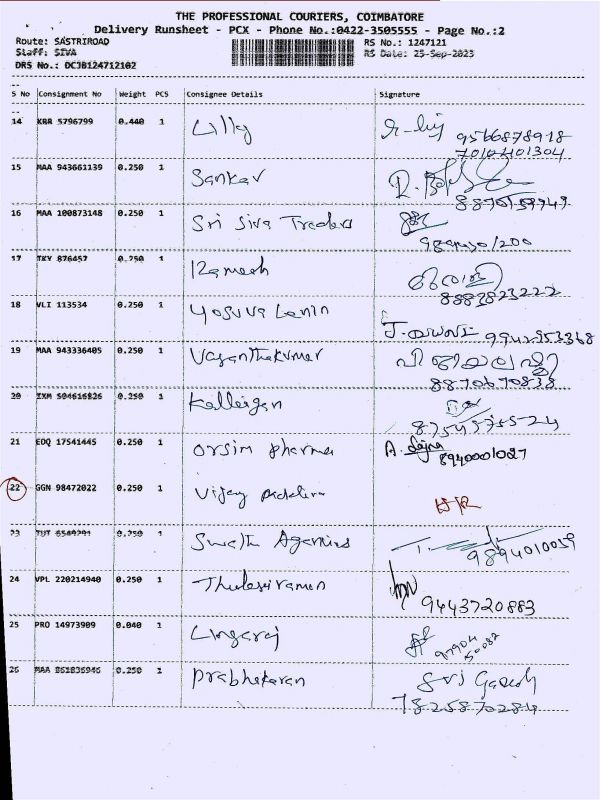 THE PROFESSIONAL COURIERS, COIMBATORE
Delivery Runsheet - PCX - Phone No.:0422-3505555 - Page No.:2
Route: SASTRIROAD RS No.: 1247121
Staff: SIVA RS Date: 25-Sep-2023
DRS No.: DCJB124712102
S No Consignment No Weight PCS Consignee Details Signature
14 KRR 5796799 0.440 1 Lilly 9566878918
7010401304
15 MAA 943661139 0.250 1 Sankar
16 MAA 100873148 0.250 1 Sri Siva Traders
17 TKY 876457 0.250 1 Ramesh
8883823222
18 VLI 113534 0.250 1 Yosuva Lenin
19 MAA 943336405 0.250 1 Vasanthakumar
8870670838
20 IXM 504616826 0.250 1 Kalleigan
8754575524
21 EDQ 17541445 0.250 1 Orsim Pharma A. 8940001027
22 GGN 98472022 0.250 1 Vijay
23 TUT 0.250 1 Swathi Agencies
9894010059
24 VPL 220214940 0.250 1 Thulasiraman
9443720883
25 PRO 14973909 0.040 1 Lingaraj 97904
50082
26 MAA 861836946 0.250 1 Prabhakaran Sri Ganesh
7825870284